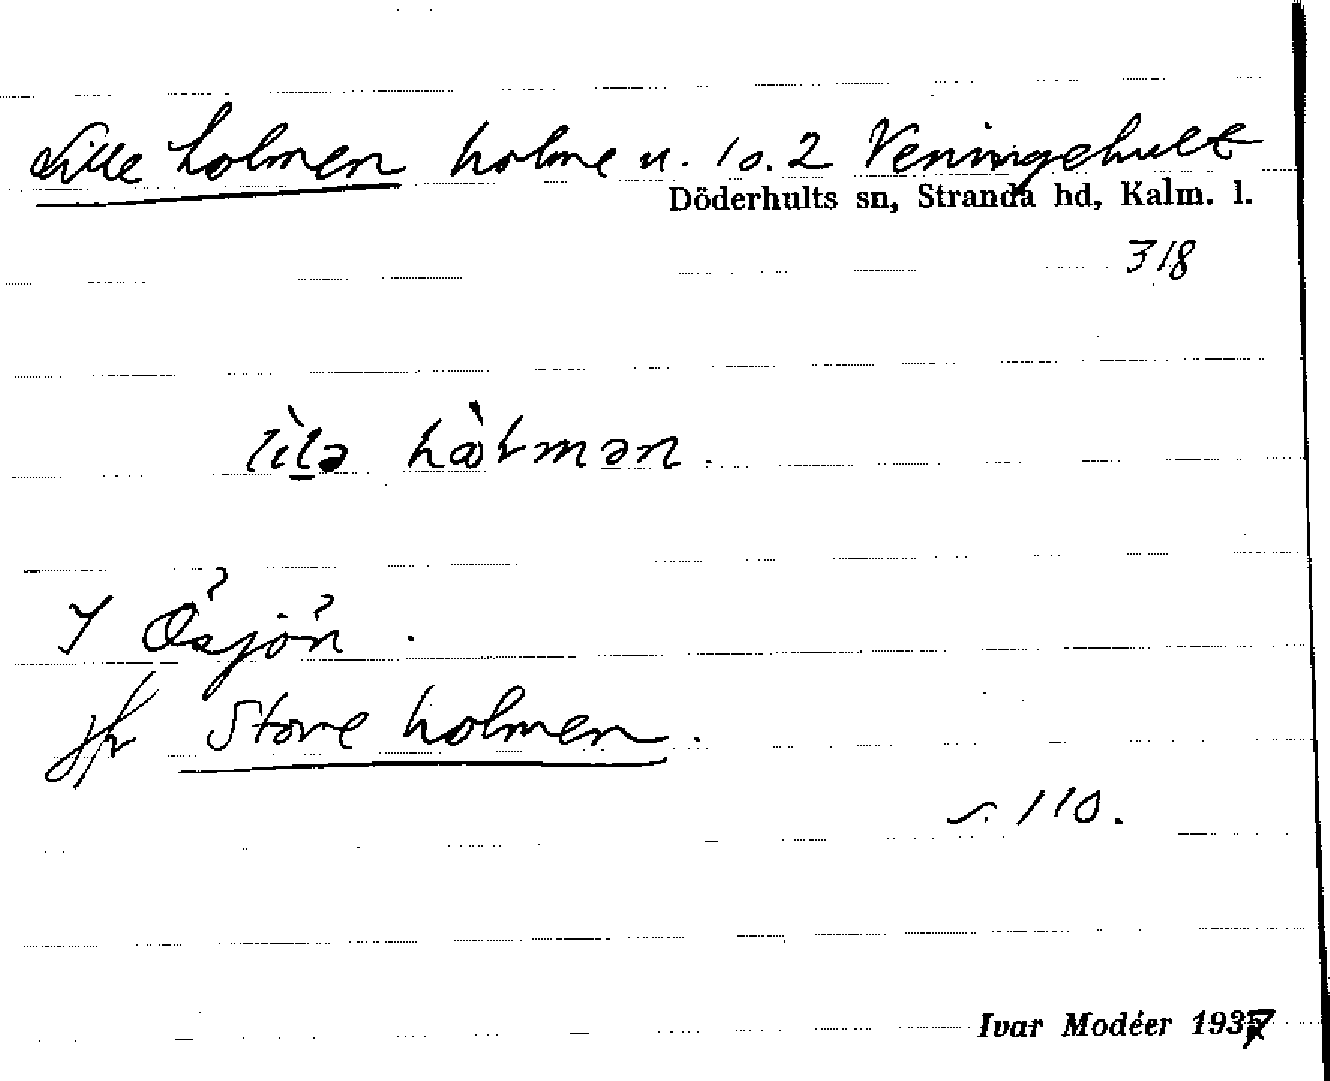 Lille holmen holme u. 1 o. 2 Veningehult
Döderhults sn, Stranda hd, Kalm. l.
318
I Ösjön.
jfr Store holmen.
s. 110.
Ivar Modéer 1937